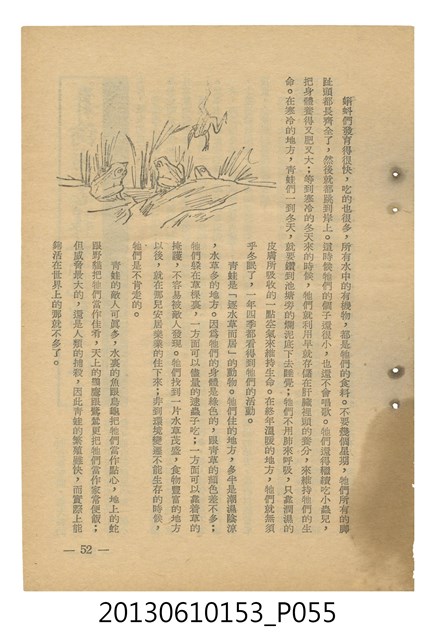 蝌蚪們發育得很快，吃的也很多，所有水中的有機物，都是牠們的食料。不要幾個星期，牠們所有的腳
趾頭都長齊全了，然後就都跳到岸上。這時候牠們的個子還很小，也還不會唱歌。牠們還得繼續吃小蟲兒，
把身體養得又肥又大；等到寒冷的冬天來的時候，牠們就利用早就存儲在肝臟裡頭的養分，來維持牠們的生
命。在寒冷的地方，青蛙們一到冬天，就要鑽到池塘旁的爛泥底下去睡覺；牠們不用肺來呼吸，只靠濕濕的
皮膚所吸收的一點空氣來維持生命。在終年溫暖的地方，牠們就無須
乎冬眠了，一年四季都看得到牠們的活動。
青蛙是「逐水草而居」的動物。牠們住的地方，多半是潮濕陰涼
，水草多的地方。因爲牠們的身體是綠色的，跟青草的顏色差不多；
牠們躲在草樑裏，一方面可以儘量的逮蟲子吃；一方面可以靠着草的
掩護，不容易被敵人發現。牠們找到一片水草茂盛，食物豐富的地方
以後，就在那兒安居樂業的住下來；非到環境變遷不能生存的時候，
牠們是不肯走的。
青蛙的敵人可眞多，水裏的魚跟烏龜把牠們當作點心，地上的蛇
跟野貓把牠們當作佳肴，天上的鸛鷹跟鷺鷥更把牠們當作家常便飯；
但威脅最大的，還是人類的捕殺，因此青蛙的繁殖雖快，而實際上能
夠活在世界上的却就不多了。
— 52 —
20130610153_P055